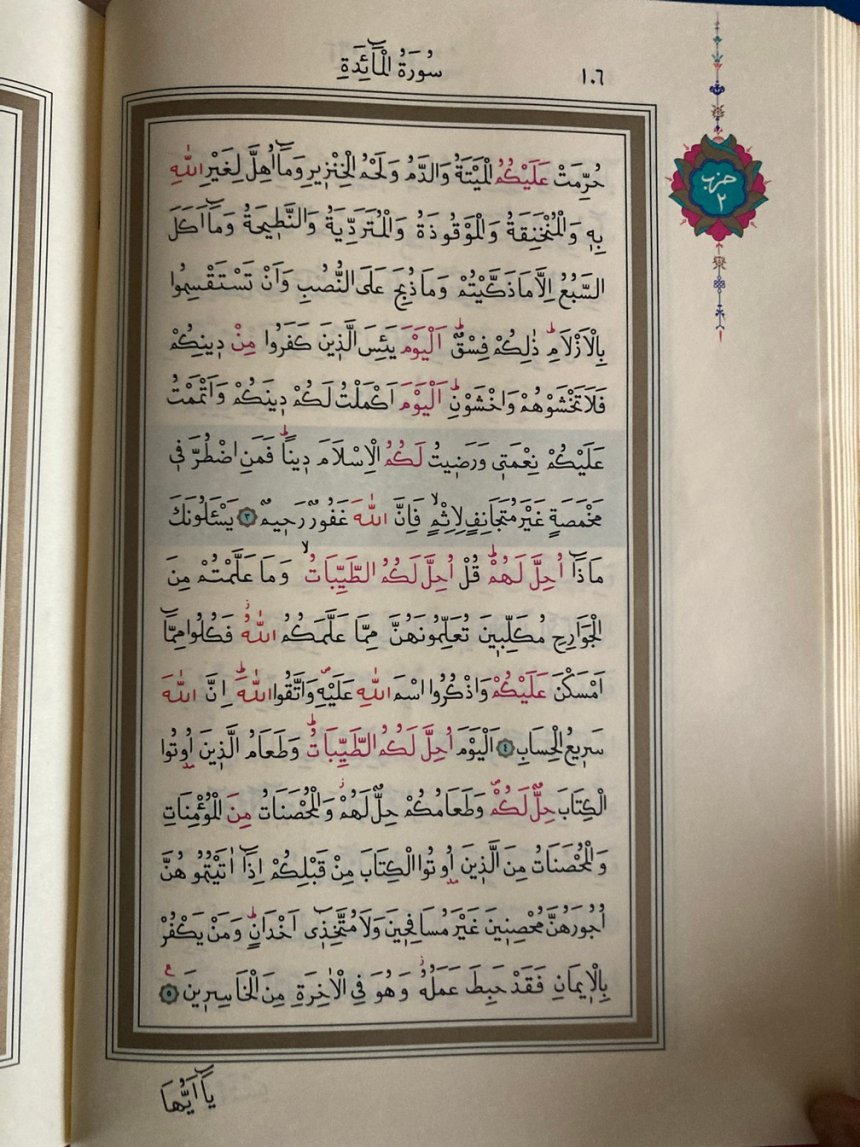 سُورَةُ الْمَٓائِدَةِ
١٠٦
حزب
٢
حُرِّمَتْ عَلَيْكُمُ الْمَيْتَةُ وَالدَّمُ وَلَحْمُ الْخِنْز۪يرِ وَمَٓا اُهِلَّ لِغَيْرِ اللّٰهِ
بِه۪ وَالْمُنْخَنِقَةُ وَالْمَوْقُوذَةُ وَالْمُتَرَدِّيَةُ وَالنَّط۪يحَةُ وَمَٓا اَكَلَ
السَّبُعُ اِلَّا مَا ذَكَّيْتُمْ وَمَا ذُبِحَ عَلَى النُّصُبِ وَاَنْ تَسْتَقْسِمُوا
بِالْاَزْلَامِۜ ذٰلِكُمْ فِسْقٌۜ اَلْيَوْمَ يَئِسَ الَّذ۪ينَ كَفَرُوا مِنْ د۪ينِكُمْ
فَلَا تَخْشَوْهُمْ وَاخْشَوْنِۜ اَلْيَوْمَ اَكْمَلْتُ لَكُمْ د۪ينَكُمْ وَاَتْمَمْتُ
عَلَيْكُمْ نِعْمَت۪ي وَرَض۪يتُ لَكُمُ الْاِسْلَامَ د۪يناًۜ فَمَنِ اضْطُرَّ ف۪ي
مَخْمَصَةٍ غَيْرَ مُتَجَانِفٍ لِاِثْمٍۙ فَاِنَّ اللّٰهَ غَفُورٌ رَح۪يمٌ ٣ يَسْـَٔلُونَكَ
مَاذَٓا اُحِلَّ لَهُمْۜ قُلْ اُحِلَّ لَكُمُ الطَّيِّبَاتُۙ وَمَا عَلَّمْتُمْ مِنَ
الْجَوَارِحِ مُكَلِّب۪ينَ تُعَلِّمُونَهُنَّ مِمَّا عَلَّمَكُمُ اللّٰهُۘ فَكُلُوا مِمَّٓا
اَمْسَكْنَ عَلَيْكُمْ وَاذْكُرُوا اسْمَ اللّٰهِ عَلَيْهِۖ وَاتَّقُوا اللّٰهَۜ اِنَّ اللّٰهَ
سَر۪يعُ الْحِسَابِ ٤ اَلْيَوْمَ اُحِلَّ لَكُمُ الطَّيِّبَاتُۜ وَطَعَامُ الَّذ۪ينَ اُو۫تُوا
الْكِتَابَ حِلٌّ لَكُمْۖ وَطَعَامُكُمْ حِلٌّ لَهُمْۘ وَالْمُحْصَنَاتُ مِنَ الْمُؤْمِنَاتِ
وَالْمُحْصَنَاتُ مِنَ الَّذ۪ينَ اُو۫تُوا الْكِتَابَ مِنْ قَبْلِكُمْ اِذَٓا اٰتَيْتُمُوهُنَّ
اُجُورَهُنَّ مُحْصِن۪ينَ غَيْرَ مُسَافِح۪ينَ وَلَا مُتَّخِذ۪ٓي اَخْدَانٍۜ وَمَنْ يَكْفُرْ
بِالْا۪يمَانِ فَقَدْ حَبِطَ عَمَلُهُۘ وَهُوَ فِي الْاٰخِرَةِ مِنَ الْخَاسِر۪ينَ۟ ٥
يَٓا اَيُّهَا